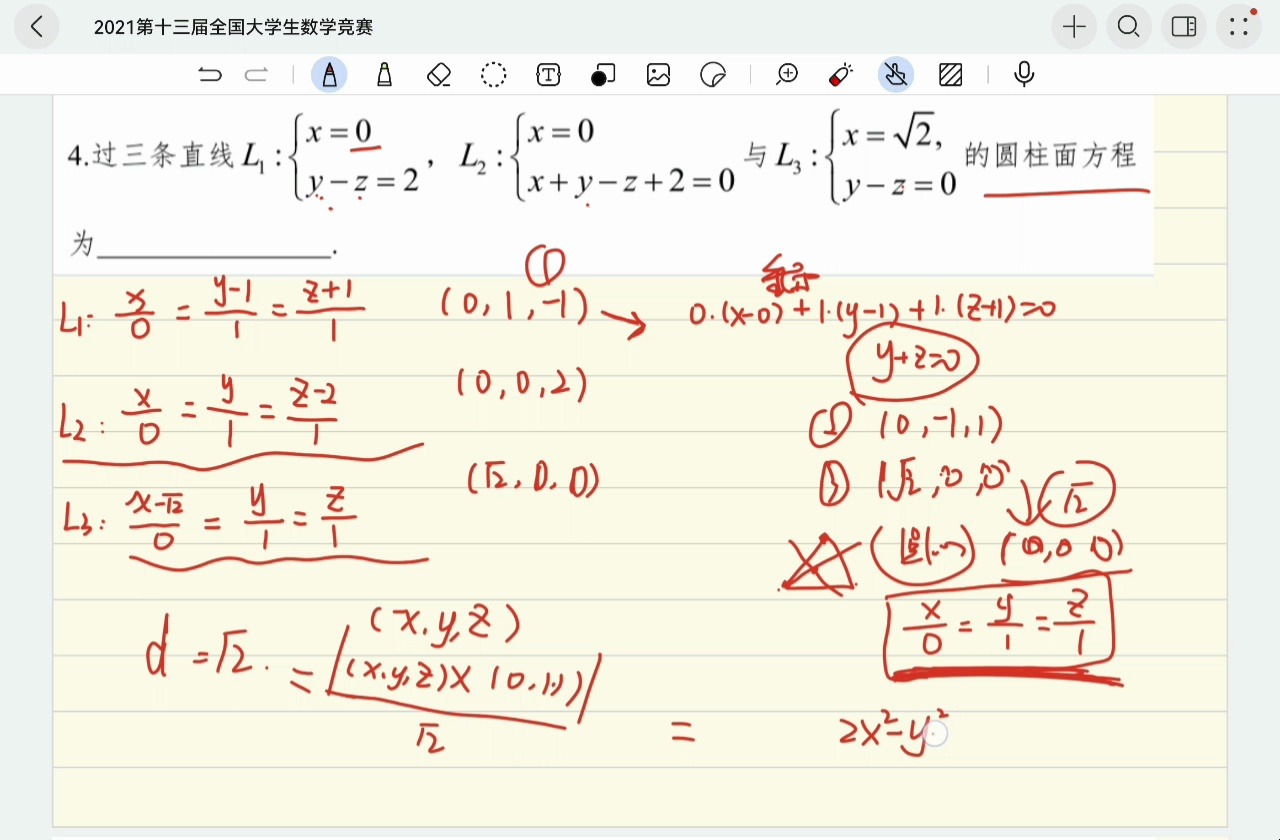 2021第十三届全国大学生数学竞赛
4.过三条直线 L₁: { x = 0, y − z = 2 , L₂: { x = 0, x + y − z + 2 = 0 与 L₃: { x = √2, y − z = 0 的圆柱面方程
为________________.
①
L₁: x/0 = (y-1)/1 = (z+1)/1 (0, 1, -1) → 0·(x-0) + 1·(y-1) + 1·(z+1)=0
y+z=0
L₂: x/0 = y/1 = (z-2)/1 (0, 0, 2)
② (0, -1, 1)
L₃: (x-√2)/0 = y/1 = z/1 (√2, 0, 0)
③ (√2, 0, 0) √2
(圆心) (0, 0 0)
x/0 = y/1 = z/1
(x, y, z)
d = √2. = |(x, y, z) × (0, 1, 1)| / √2 = 2x² - y²